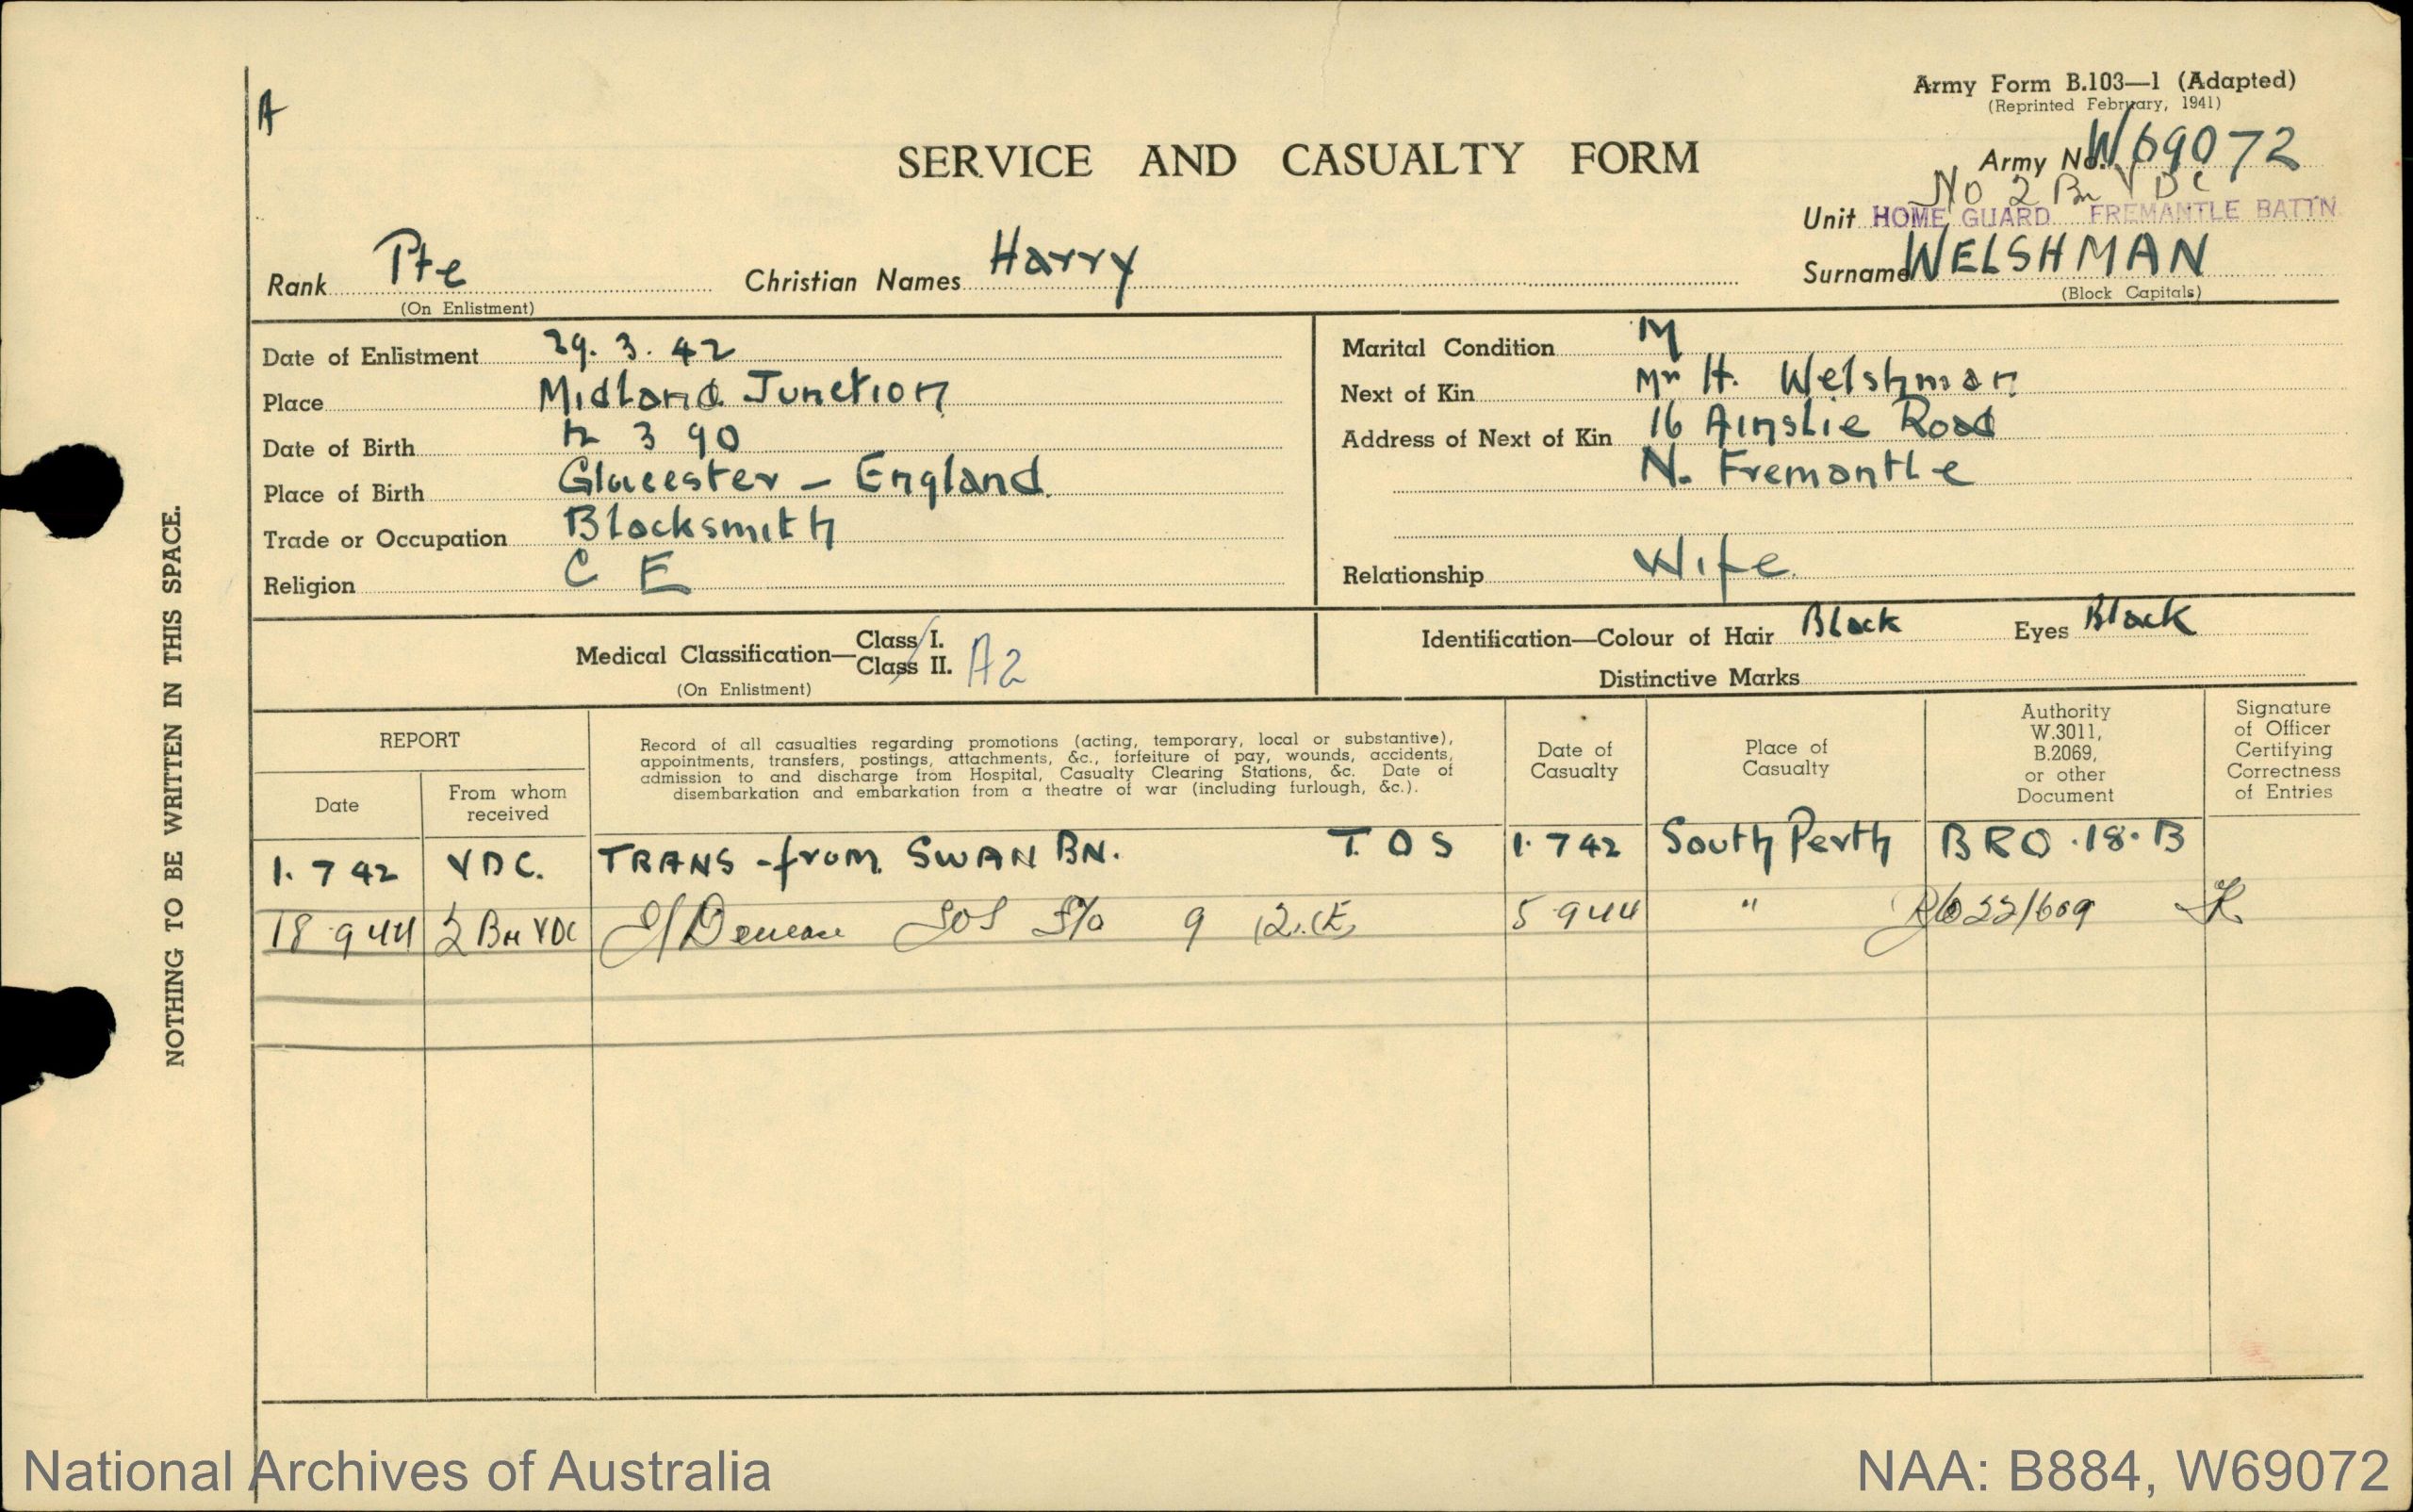 A
Army Form B.103—1 (Adapted)
(Reprinted February, 1941)
SERVICE AND CASUALTY FORM
Army No. W69072
No 2 Bn VDC
Unit HOME GUARD FREMANTLE BATTN
Rank Pte Christian Names Harry Surname WELSHMAN
(On Enlistment) (Block Capitals)
Date of Enlistment 29. 3. 42
Place Midland Junction
Date of Birth 3 90
Place of Birth Glucester - England.
Trade or Occupation Blacksmith
Religion C E
Marital Condition M
Next of Kin H. Welshman
Address of Next of Kin 16 Ainslie Road
N. Fremantle
Relationship Wife.
Medical Classification—Class I.
Class II. A2
(On Enlistment)
Identification—Colour of Hair Black Eyes Black
Distinctive Marks
REPORT
Date
From whom
received
Record of all casualties regarding promotions (acting, temporary, local or substantive),
appointments, transfers, postings, attachments, &c., forfeiture of pay, wounds, accidents,
admission to and discharge from Hospital, Casualty Clearing Stations, &c. Date of
disembarkation and embarkation from a theatre of war (including furlough, &c.).
Date of
Casualty
Place of
Casualty
Authority
W.3011,
B.2069,
or other
Document
Signature
of Officer
Certifying
Correctness
of Entries
1. 7 42 VDC. TRANS - from SWAN BN. T. O S 1. 7 42 South Perth BRO. 18. B
18 9 44 2 Bn VDC SOS 5 9 44 " 22/609
NOTHING TO BE WRITTEN IN THIS SPACE.
National Archives of Australia
NAA: B884, W69072